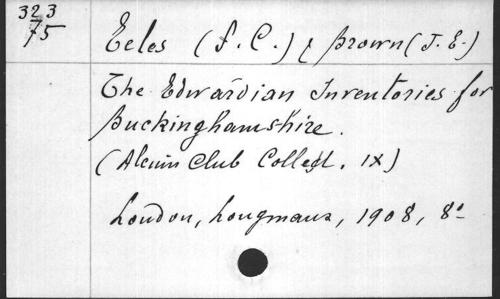 323
75
Eeles (F. C.) & Brown (J. E.)
The Edwardian Inventories for
Buckinghamshire.
(Alcuin Club Collect. IX)
London, Longmans, 1908, 8º